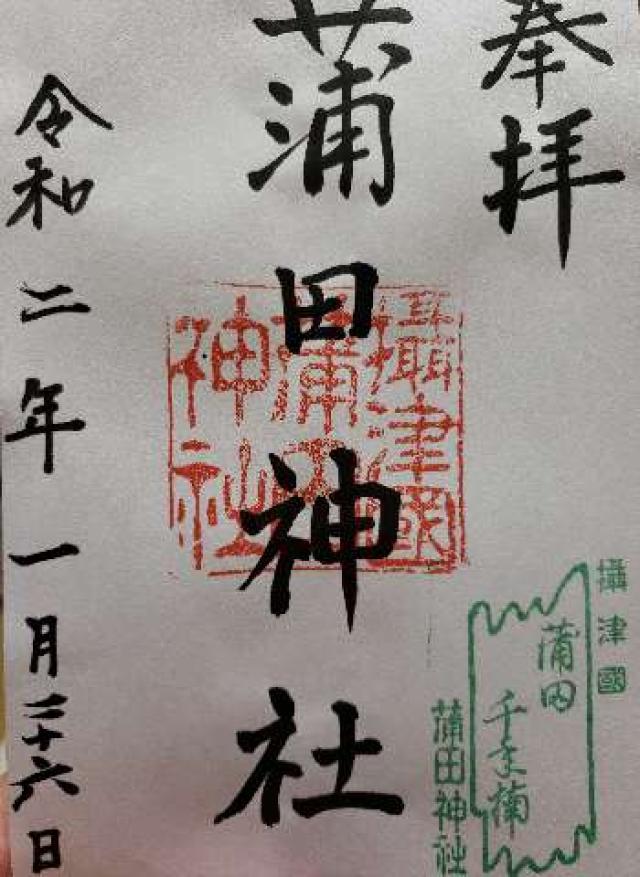 奉拝
蒲田神社
令和二年一月二十六日
攝津國
蒲田
神社
攝津國
蒲田
千年楠
蒲田神社